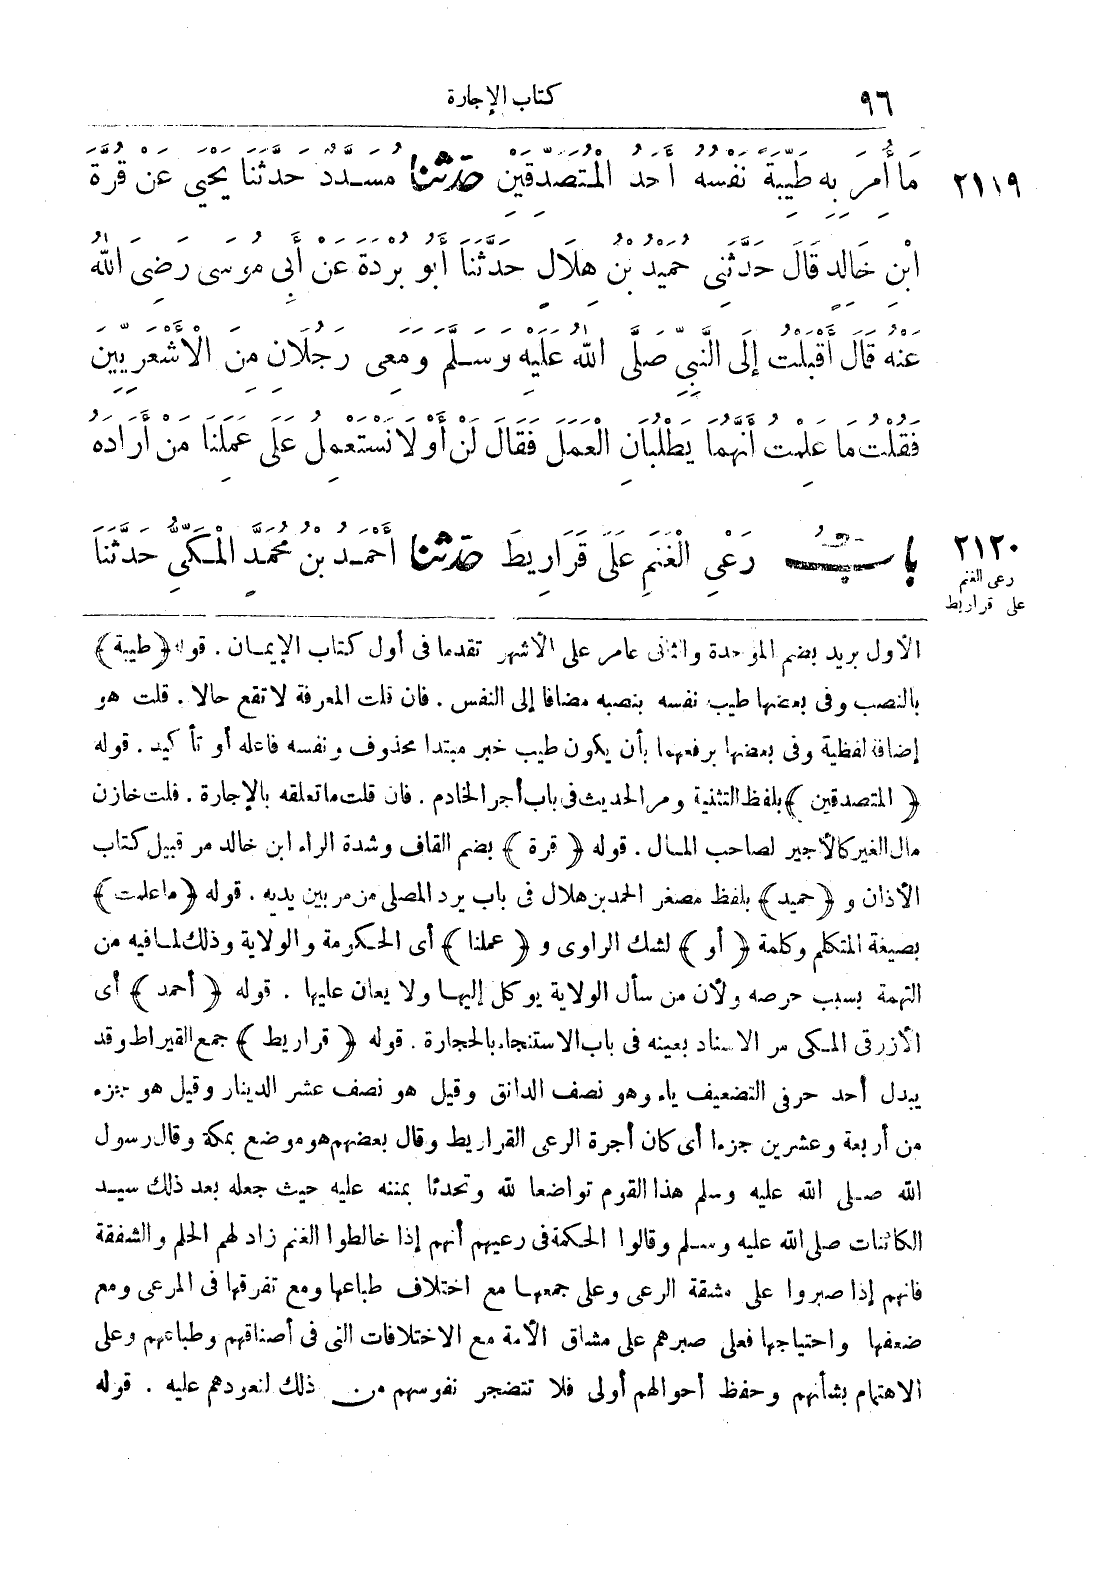 ٩٦
كتاب الإجارة
مَا أُمِرَ بِهِ طَيِّبَةً نَفْسُهُ أَحَدُ الْمُتَصَدِّقَيْنِ حَدَّثَنَا مُسَدَّدٌ حَدَّثَنَا يَحْيَى عَنْ قُرَّةَ
٢١١٩
ابْنِ خَالِدٍ قَالَ حَدَّثَنِي حُمَيْدُ بْنُ هِلَالٍ حَدَّثَنَا أَبُو بُرْدَةَ عَنْ أَبِي مُوسَى رَضِيَ اللهُ
عَنْهُ قَالَ أَقْبَلْتُ إِلَى النَّبِيِّ صَلَّى اللهُ عَلَيْهِ وَسَلَّمَ وَمَعِي رَجُلَانِ مِنَ الْأَشْعَرِيِّينَ
فَقُلْتُ مَا عَلِمْتُ أَنَّهُمَا يَطْلُبَانِ الْعَمَلَ فَقَالَ لَنْ أَوْ لَا نَسْتَعْمِلُ عَلَى عَمَلِنَا مَنْ أَرَادَهُ
بَابُ رَعْيِ الْغَنَمِ عَلَى قَرَارِيطَ حَدَّثَنَا أَحْمَدُ بْنُ مُحَمَّدٍ الْمَكِّيُّ حَدَّثَنَا
٢١٢٠
رعى الغنم
على قراريط
الأول بريد بضم الموحدة والثانى عامر على الأشهر تقدما فى أول كتاب الإيمان . قوله ﴿ طيبة ﴾
بالنصب وفى بعضها طيب نفسه بنصبه مضافا إلى النفس . فان قلت المعرفة لا تقع حالا . قلت هو
إضافة لفظية وفى بعضها برفعهما بأن يكون طيب خبر مبتدا محذوف ونفسه فاعله أو تأكيد . قوله
﴿ المتصدقين ﴾ بلفظ التثنية ومر الحديث فى باب أجر الخادم . فان قلت ما تعلقه بالإجارة . قلت خازن
مال الغير كالأجير لصاحب المال . قوله ﴿ قرة ﴾ بضم القاف وشدة الراء ابن خالد مر قبيل كتاب
الأذان و ﴿ حميد ﴾ بلفظ مصغر الحمد بن هلال فى باب يرد المصلى من مر بين يديه . قوله ﴿ ما علمت ﴾
بصيغة المتكلم وكلمة ﴿ أو ﴾ لشك الراوى و ﴿ عملنا ﴾ أى الحكومة والولاية وذلك لما فيه من
التهمة بسبب حرصه ولأن من سأل الولاية يوكل إليها ولا يعان عليها . قوله ﴿ أحمد ﴾ أى
الأزرقى المكى مر الاسناد بعينه فى باب الاستنجاء بالحجارة . قوله ﴿ قراريط ﴾ جمع القيراط وقد
يبدل أحد حرفى التضعيف ياء وهو نصف الدانق وقيل هو نصف عشر الدينار وقيل هو جزء
من أربعة وعشرين جزءا أى كان أجرة الرعى القراريط وقال بعضهم هو موضع بمكة وقال رسول
الله صلى الله عليه وسلم هذا القوم تواضعا لله وتحدثا بمننه عليه حيث جعله بعد ذلك سيد
الكائنات صلى الله عليه وسلم وقالوا الحكمة فى رعيهم أنهم إذا خالطوا الغنم زاد لهم الحلم والشفقة
فانهم إذا صبروا على مشقة الرعى وعلى جمعها مع اختلاف طباعها ومع تفرقها فى المرعى ومع
ضعفها واحتياجها فعلى صبرهم على مشاق الأمة مع الاختلافات التى فى أصنافهم وطباعهم وعلى
الاهتمام بشأنهم وحفظ أحوالهم أولى فلا تتضجر نفوسهم من ذلك لتعودهم عليه . قوله